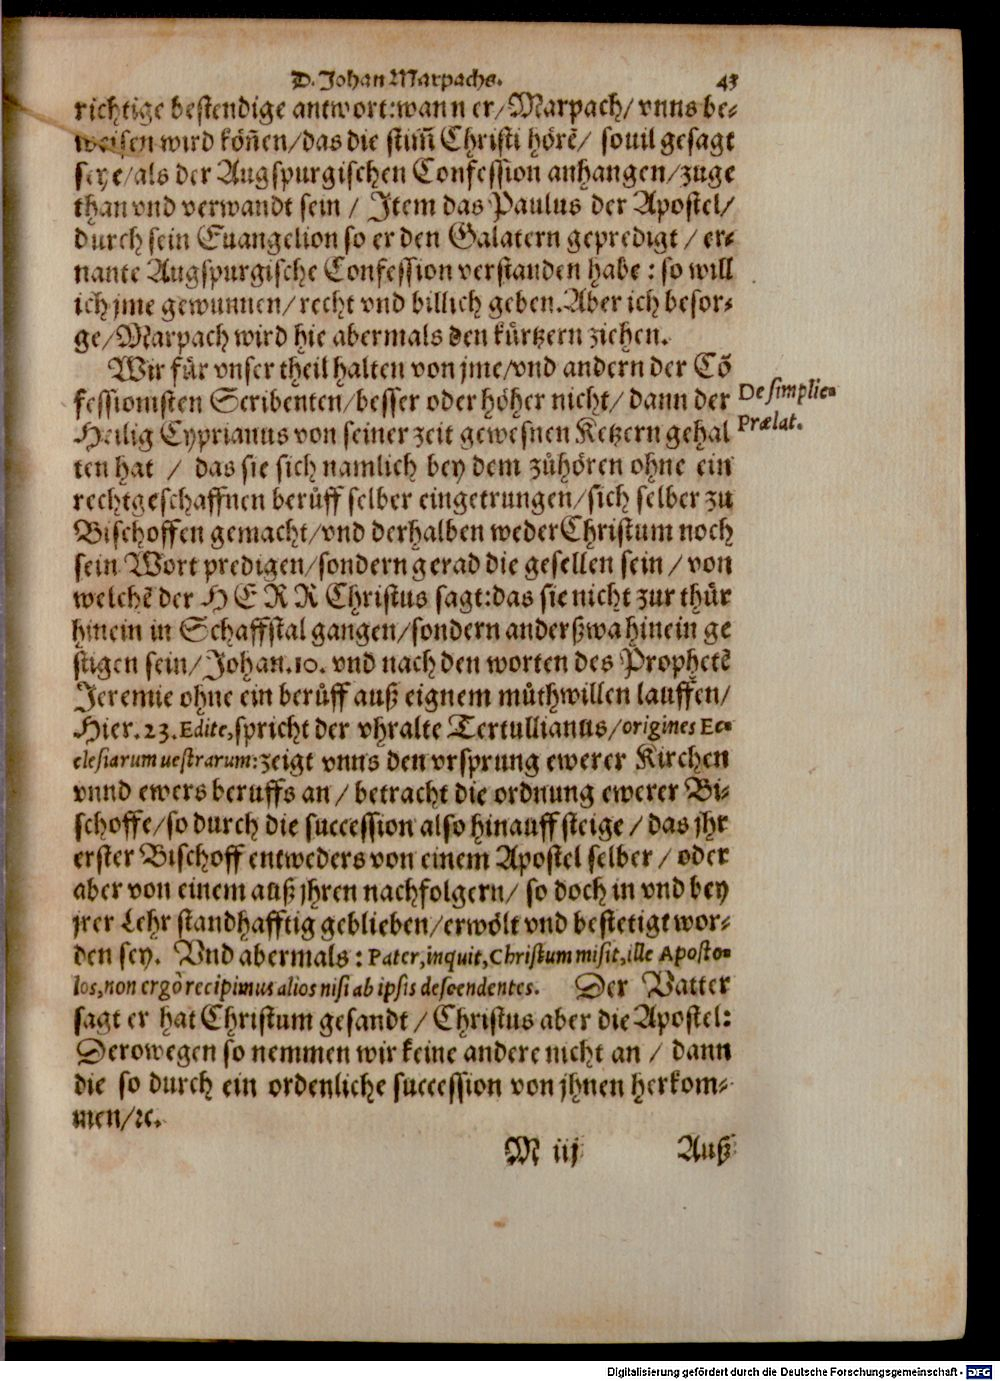 D. Johan Marpachs. 43
richtige bestendige antwort: wann er/Marpach/vnns be-
weisen wird köñen/das die stim̃ Christi hörẽ/ souil gesagt
seye/als der Augspurgischen Confession anhangen/zuge
than vnd verwandt sein / Item das Paulus der Apostel/
durch sein Euangelion so er den Galatern gepredigt / er-
nante Augspurgische Confession verstanden habe : so will
ich jme gewunnen/recht vnd billich geben. Aber ich besor-
ge/Marpach wird hie abermals den kürtzern ziehen.
Wir für vnser theil halten von jme/vnd andern der Cõ
fessionisten Scribenten/besser oder höher nicht/ dann der
De simplic.
Heilig Cyprianus von seiner zeit gewesnen Ketzern gehal
Prælat.
ten hat / das sie sich namlich bey dem zůhören ohne ein
rechtgeschaffnen berůff selber eingetrungen/sich selber zu
Bischoffen gemacht/vnd derhalben weder Christum noch
sein Wort predigen/sondern gerad die gesellen sein / von
welchẽ der HERR Christus sagt:das sie nicht zur thür
hinein in Schaffstal gangen/sondern anderßwa hinein ge
stigen sein/Johan.10. vnd nach den worten des Prophetẽ
Jeremie ohne ein berůff auß eignem můthwillen lauffen/
Hier.23. Edite, spricht der vhralte Tertullianus/origines Ec-
clesiarum uestrarum: zeigt vnns den vrsprung ewerer Kirchen
vnnd ewers beruffs an / betracht die ordnung ewerer Bi-
schoffe/so durch die succession also hinauff steige / das jhr
erster Bischoff entweders von einem Apostel selber / oder
aber von einem auß jhren nachfolgern/ so doch in vnd bey
jrer Lehr standhafftig geblieben/erwölt vnd bestetigt wor-
den sey. Vnd abermals : Pater, inquit, Christum misit, ille Aposto-
los, non ergò recipimus alios nisi ab ipsis descendentes. Der Vatter
sagt er hat Christum gesandt / Christus aber die Apostel:
Derowegen so nemmen wir keine andere nicht an / dann
die so durch ein ordenliche succession von jhnen herkom-
men/ꝛc.
M iij Auß
Digitalisierung gefördert durch die Deutsche Forschungsgemeinschaft - DFG